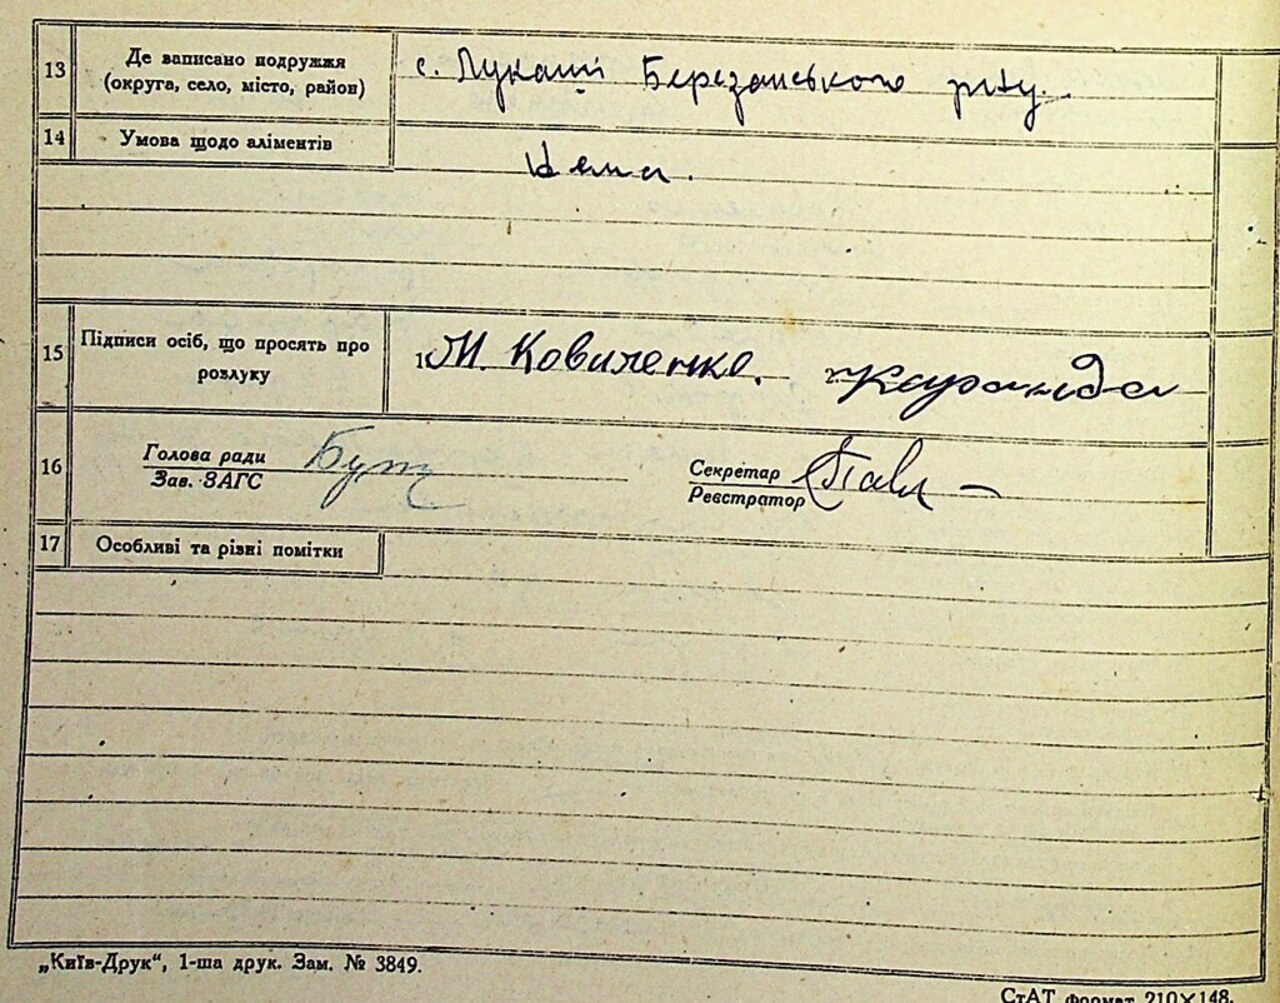 13 Де записано подружжя
(округа, село, місто, район)
с. Лукаші Березанського р-ну.
14 Умова щодо аліментів
Нема.
15 Підписи осіб, що просять про
розлуку
1) М. Коваленко. 2)
16 Голова ради
Зав. ЗАГС
Секретар
Реєстратор
17 Особливі та різні помітки
„Київ-Друк“, 1-ша друк. Зам. № 3849.
СтАТ формат 210×148.